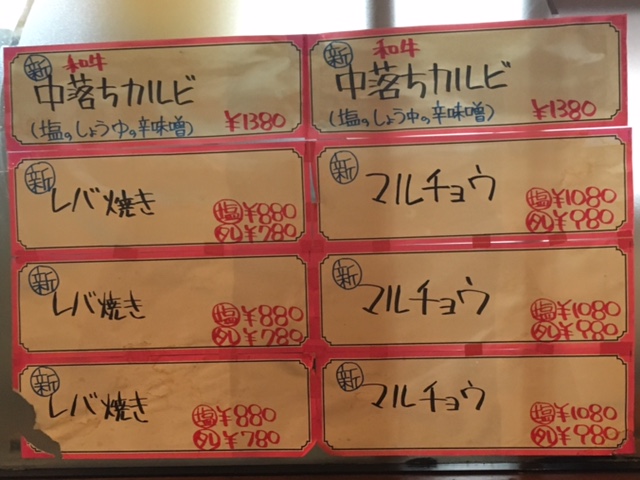 新 和牛
中落ちカルビ
(塩の しょうゆの 辛味噌) ¥1380
新 和牛
中落ちカルビ
(塩の しょうゆの 辛味噌) ¥1380
新 レバ焼き
塩¥880
タレ¥780
新 マルチョウ
塩¥1080
タレ¥980
新 レバ焼き
塩¥880
タレ¥780
新 マルチョウ
塩¥1080
タレ¥980
新 レバ焼き
塩¥880
タレ¥780
新 マルチョウ
塩¥1080
タレ¥980